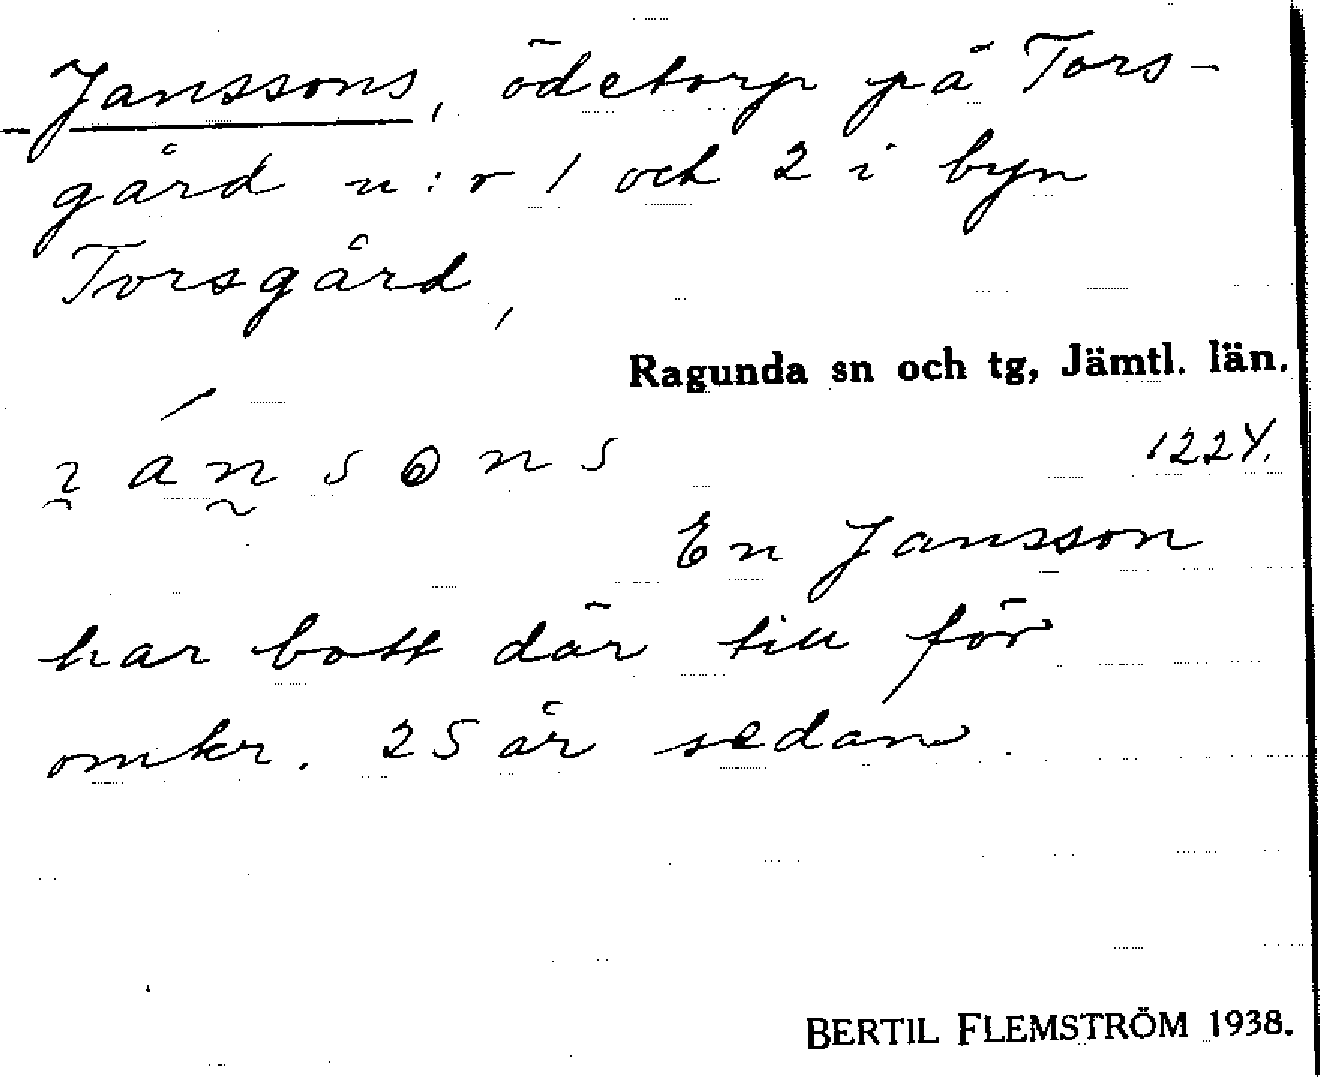 Janssons, ödetorp på Tors-
gård n:r 1 och 2 i byn
Torsgård,
Ragunda sn och tg, Jämtl. län.
1224.
En Jansson
har bott där till för
omkr. 25 år sedan.
BERTIL FLEMSTRÖM 1938.